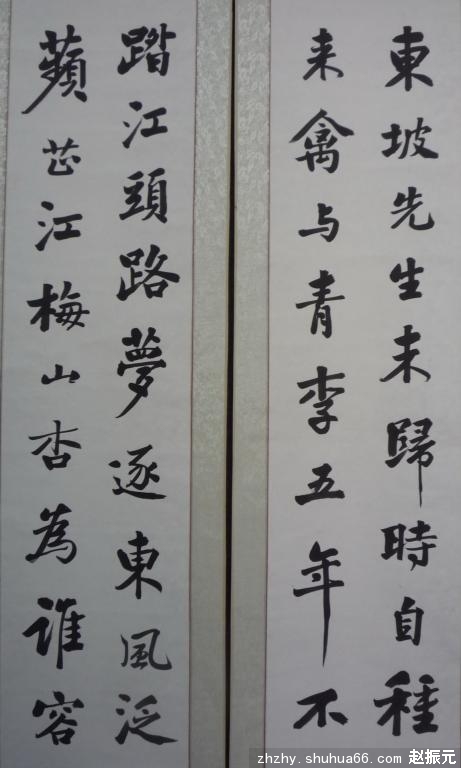 東坡先生未歸時自種
来禽与青李五年不
踏江頭路夢逐東風泛
蘋芷江梅山杏為誰容
zhzhy.shuhua66.com 赵振元